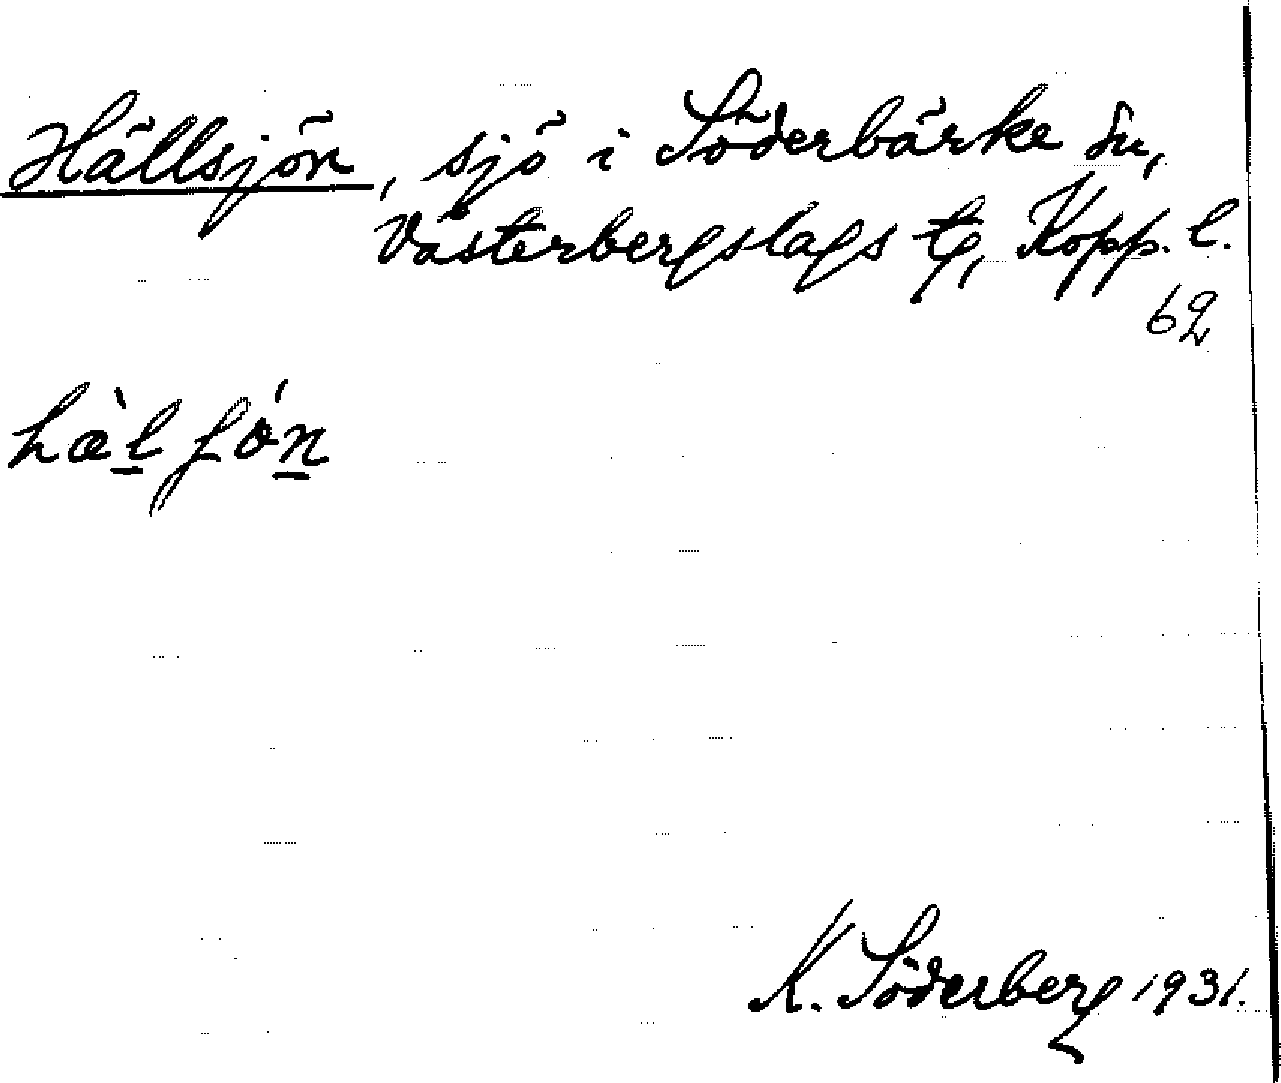 Hällsjön, sjö i Söderbärke sn,
Västerbergslags tg, Kopp. l.
62
hæ̀l̠ ʃøńn̠
K. Söderberg 1931.